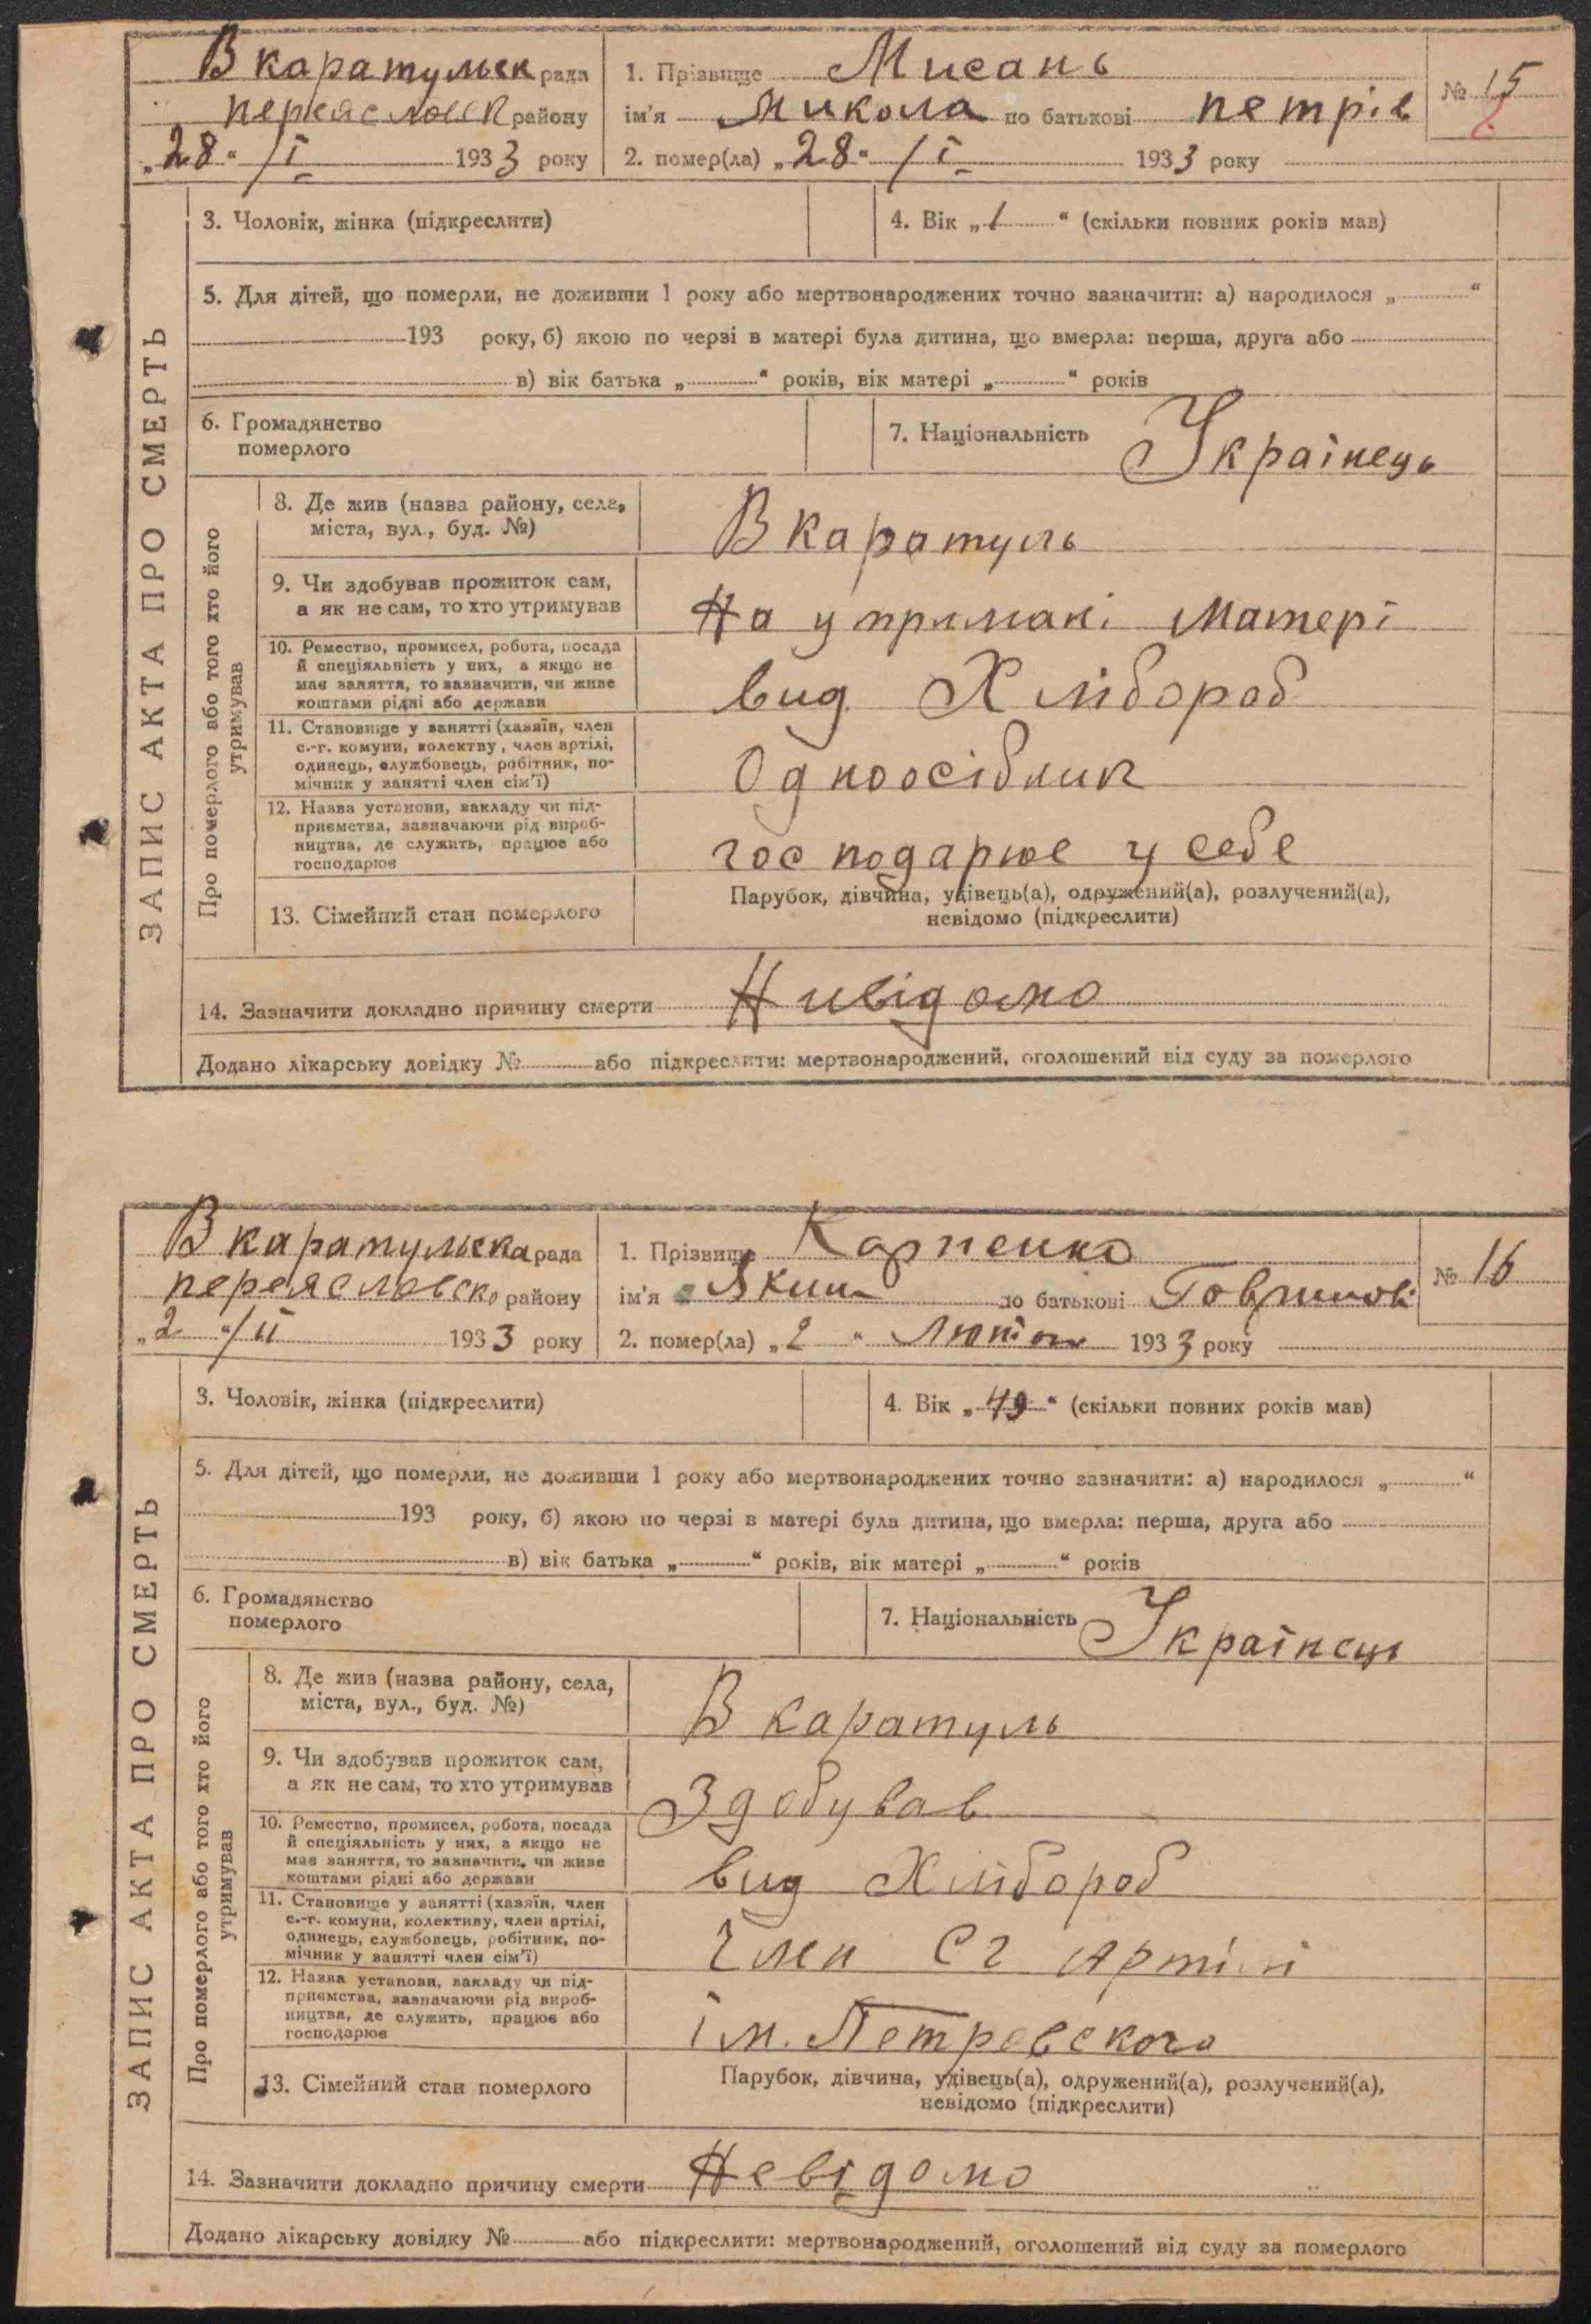 В каратульск рада
переяславск району
„28“ /І 1933 року
1. Прізвище Мисань
ім'я Микола по батькові петрів
№ 15
2. помер(ла) „28“ /І 1933 року
3. Чоловік, жінка (підкреслити)
4. Вік „1“ (скільки повних років мав)
5. Для дітей, що померли, не доживши 1 року або мертвонароджених точно зазначити: а) народилося „ “
193 року, б) якою по черзі в матері була дитина, що вмерла: перша, друга або
в) вік батька „ “ років, вік матері „ “ років
6. Громадянство
померлого
7. Національність Українець
ЗАПИС АКТА ПРО СМЕРТЬ
Про померлого або того хто його
утримував
8. Де жив (назва району, села,
міста, вул., буд. №)
В каратуль
9. Чи здобував прожиток сам,
а як не сам, то хто утримував
На утримані Матері
10. Ремество, промисел, робота, посада
й спеціяльність у них, а якщо не
має заняття, то зазначити, чи живе
коштами рідні або держави
вид Хлібороб
11. Становище у занятті (хазяїн, член
с.-г. комуни, колектву, член артілі,
одинець, службовець, робітник, по-
мічник у занятті член сім'ї)
Одноосібник
12. Назва установи, закладу чи під-
приємства, зазначаючи рід вироб-
ництва, де служить, працює або
господарює
господарює у себе
13. Сімейний стан померлого
Парубок, дівчина, удівець(а), одружений(а), розлучений(а),
невідомо (підкреслити)
14. Зазначити докладно причину смерти Нивідомо
Додано лікарську довідку № або підкреслити: мертвонароджений, оголошений від суду за померлого
В каратульска рада
переясловско району
„2“ /ІІ 1933 року
1. Прізвище Карпенко
ім'я Яким по батькові Говрилові
№ 16
2. помер(ла) „2“ Лютого 1933 року
3. Чоловік, жінка (підкреслити)
4. Вік „49“ (скільки повних років мав)
5. Для дітей, що померли, не доживши 1 року або мертвонароджених точно зазначити: а) народилося „ “
193 року, б) якою по черзі в матері була дитина, що вмерла: перша, друга або
в) вік батька „ “ років, вік матері „ “ років
6. Громадянство
померлого
7. Національність Українець
ЗАПИС АКТА ПРО СМЕРТЬ
Про померлого або того хто його
утримував
8. Де жив (назва району, села,
міста, вул., буд. №)
В каратуль
9. Чи здобував прожиток сам,
а як не сам, то хто утримував
Здобував
10. Ремество, промисел, робота, посада
й спеціяльність у них, а якщо не
має заняття, то зазначити, чи живе
коштами рідні або держави
вид Хлібороб
11. Становище у занятті (хазяїн, член
с.-г. комуни, колективу, член артілі,
одинець, службовець, робітник, по-
мічник у занятті член сім'ї)
Член СГ Артілі
12. Назва установи, закладу чи під-
приємства, зазначаючи рід вироб-
ництва, де служить, працює або
господарює
ім. Петровского
13. Сімейний стан померлого
Парубок, дівчина, удівець(а), одружений(а), розлучений(а),
невідомо (підкреслити)
14. Зазначити докладно причину смерти Невідомо
Додано лікарську довідку № або підкреслити: мертвонароджений, оголошений від суду за померлого